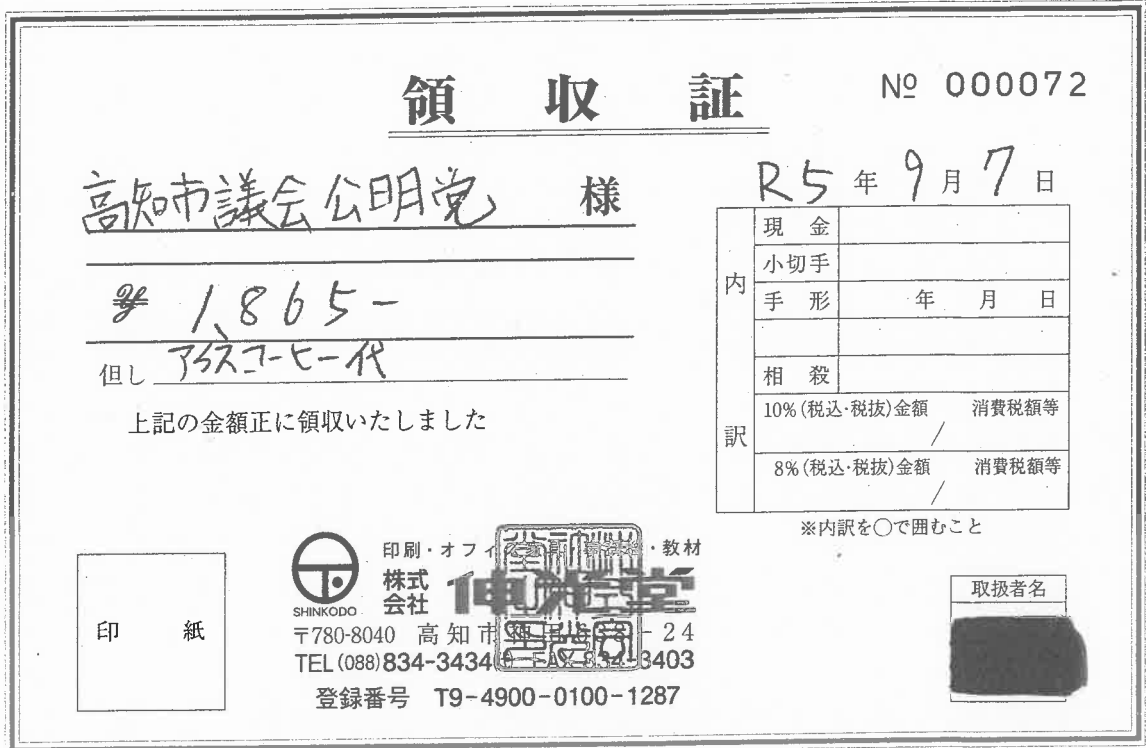 領収証
№ 000072
高知市議会公明党 様
R5年9月7日
¥ 1,865-
但し アイスコーヒー代
上記の金額正に領収いたしました
内訳
現金
小切手
手形 年 月 日
相殺
10%(税込・税抜)金額 消費税額等
/
8%(税込・税抜)金額 消費税額等
/
※内訳を○で囲むこと
印紙
SHINKODO
印刷・オフィス ・教材
株式会社 伸光堂
〒780-8040 高知市 -24
TEL(088)834-3434 FAX 834-3403
登録番号 T9-4900-0100-1287
取扱者名